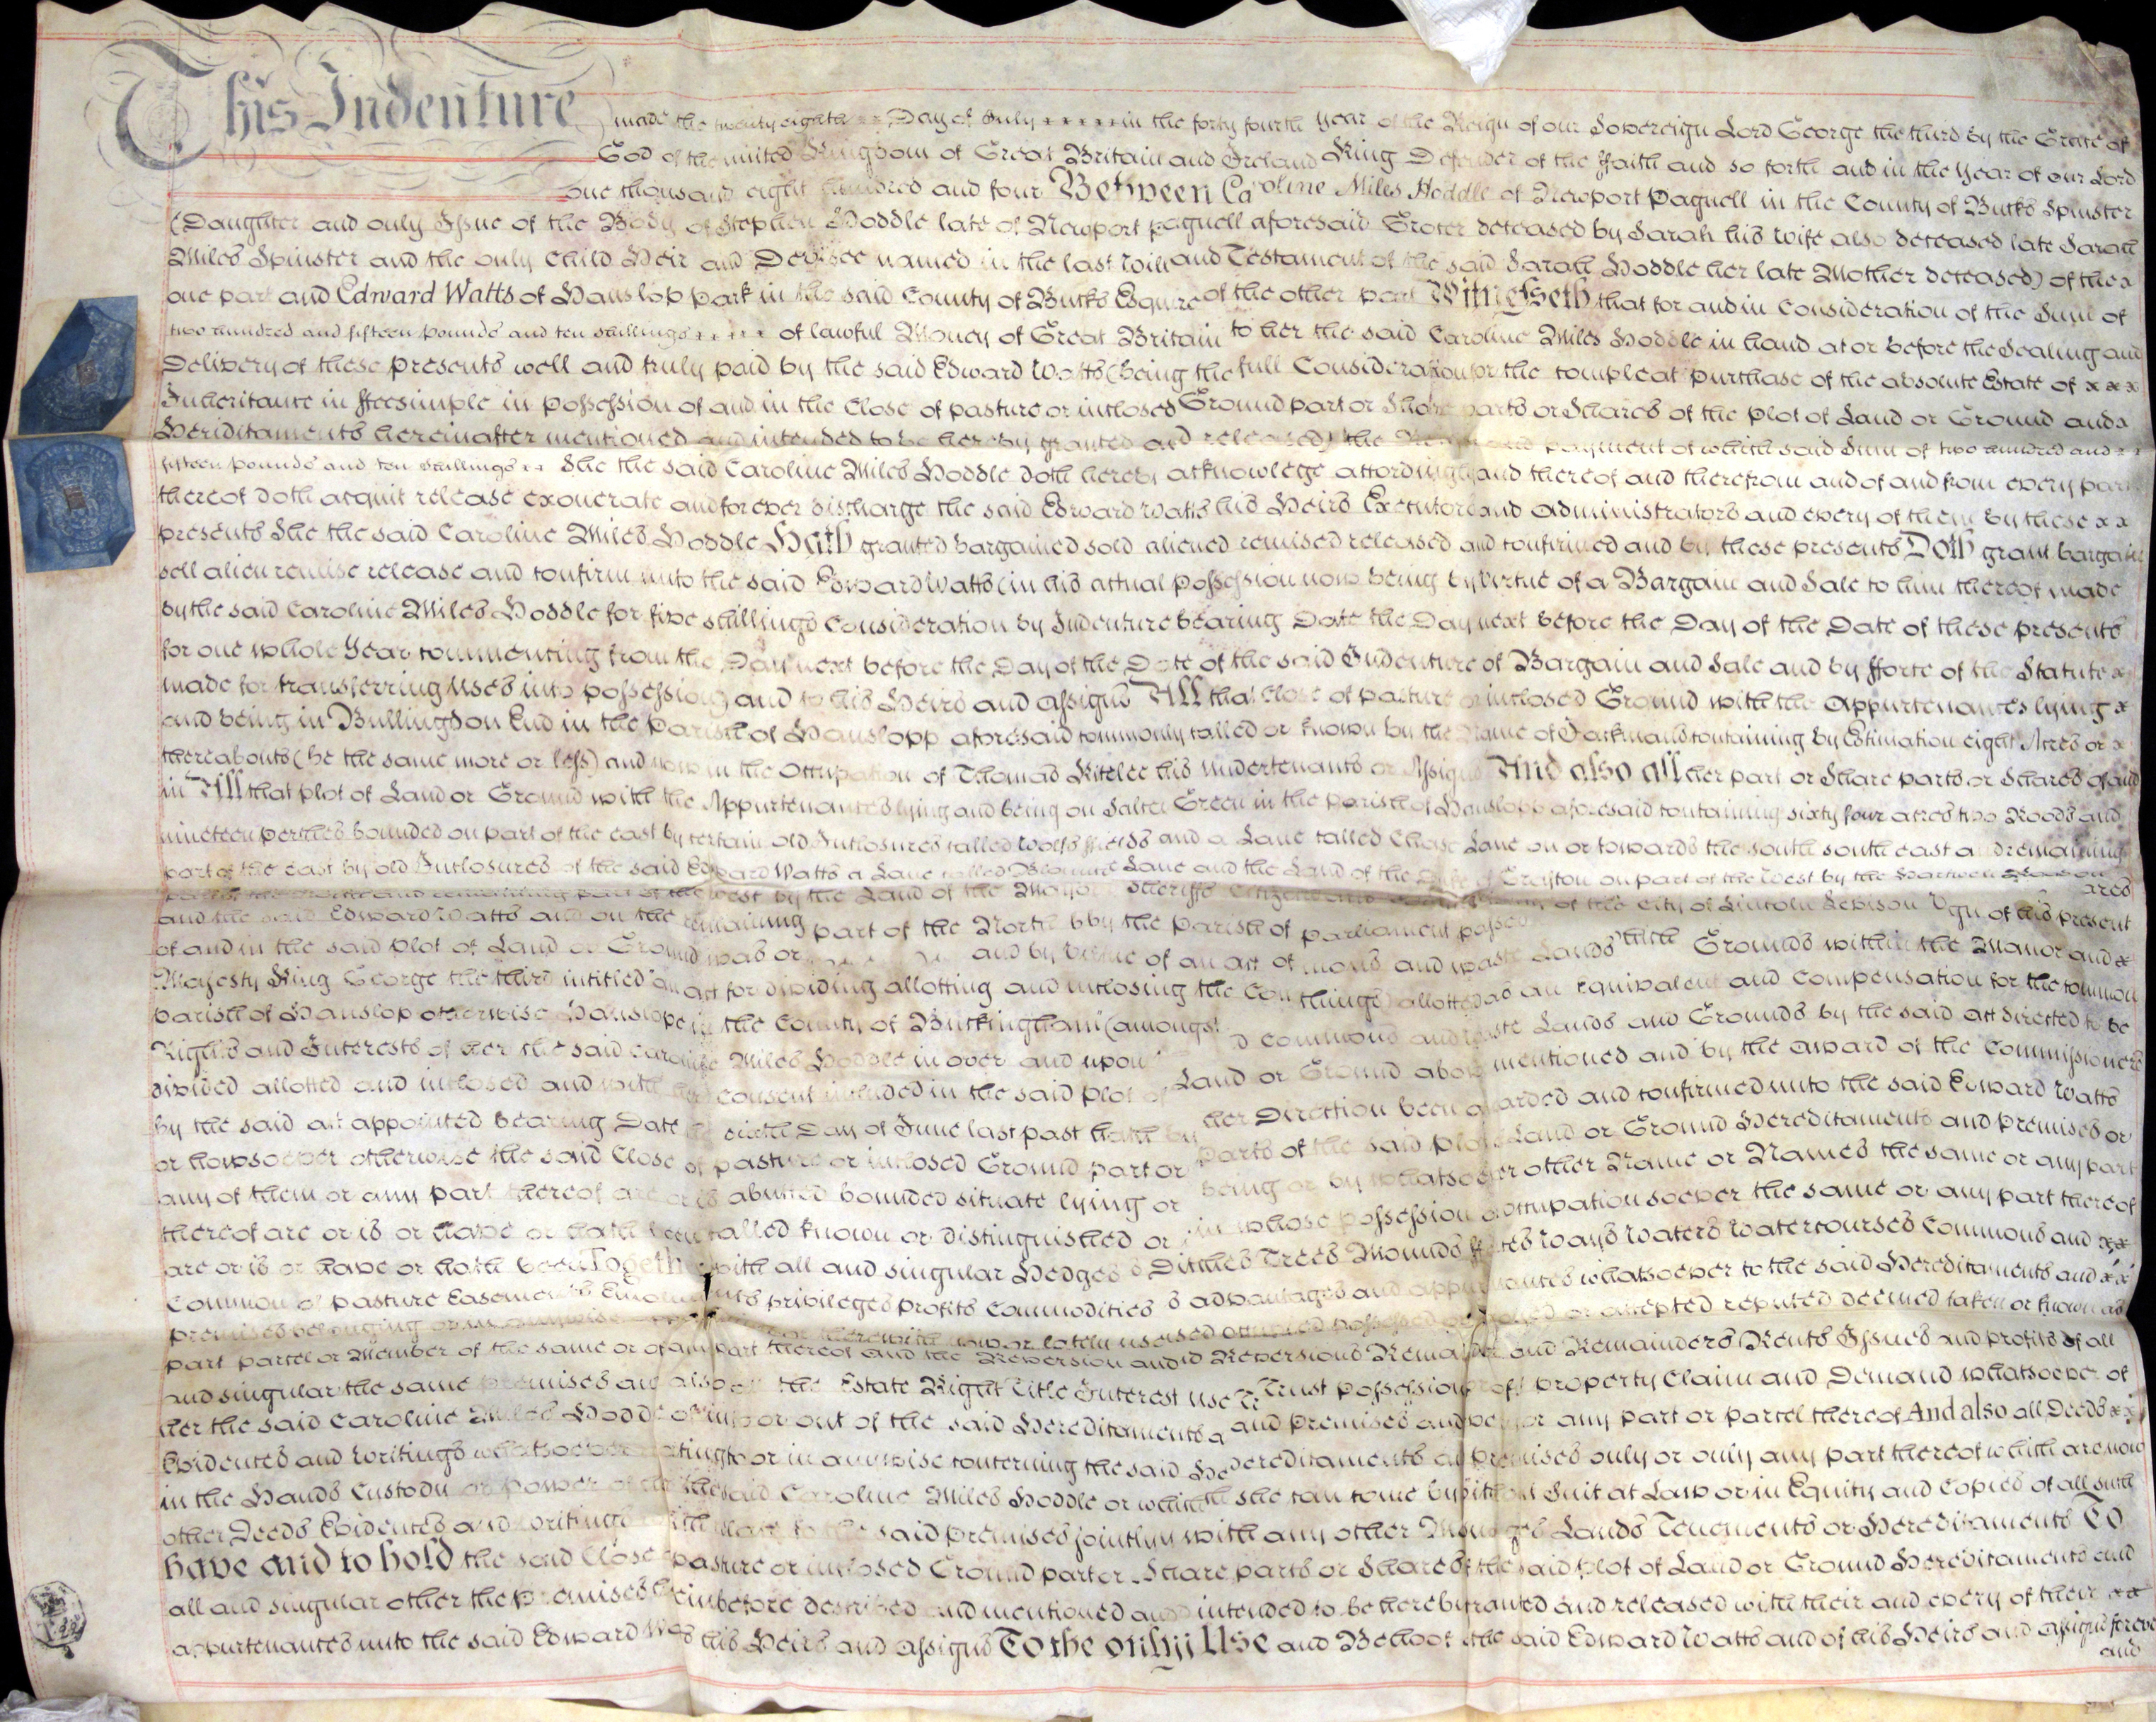 This Indenture made the twenty eighth Day of July in the forty fourth Year of the Reign of our Sovereign Lord George the third by the Grace of
God of the united Kingdom of Great Britain and Ireland King Defender of the ffaith and so forth and in the Year of our Lord
one thousand eight hundred and four Between Caroline Miles Hoddle of Newport Pagnell in the County of Bucks Spinster
(Daughter and only Issue of the Body of Stephen Hoddle late of Newport pagnell aforesaid Grocer deceased by Sarah his Wife also deceased late Sarah
Miles Spinster and the only Child Heir and Devisee named in the last Will and Testament of the said Sarah Hoddle her late Mother deceased) of the x
one part and Edward Watts of Hanslop park in the said County of Bucks Esquire of the other part Witnesseth that for and in Consideration of the Sum of
two hundred and fifteen pounds and ten shillings of lawful Money of Great Britain to her the said Caroline Miles Hoddle in hand at or before the Sealing and
Delivery of these presents well and truly paid by the said Edward Watts (being the full Consideration for the compleat purchase of the absolute Estate of x x x
Inheritance in ffeesimple in possession of and in the Close of pasture or inclosed Ground part or Share parts or Shares of the plot of Land or Ground and x
Heriditaments hereinafter mentioned and intended to be hereby granted and released) the Receipt and payment of which said Sum of two hundred and x x
fifteen pounds and ten shillings x x She the said Caroline Miles Hoddle doth hereby acknowlege accordingly and thereof and therefrom and of and from every part
thereof doth acquit release exonerate and forever discharge the said Edward Watts his Heirs Executors and administrators and every of them by these x x
presents She the said Caroline Miles Hoddle Hath granted bargained sold aliened remised released and confirmed and by these presents Doth grant bargain
sell alien remise release and confirm unto the said Edward Watts (in his actual possession now being by Virtue of a Bargain and Sale to him thereof made
by the said Caroline Miles Hoddle for five shillings Consideration by Indenture bearing Date the Day next before the Day of the Date of these presents
for one whole Year commencing from the Day next before the Day of the Date of the said Indenture of Bargain and Sale and by fforce of the Statute x
made for transferring Uses into possession) and to his Heirs and assigns All that Close of pasture or inclosed Ground with the Appurtenances lying x
and being in Bullington End in the Parish of Hanslopp aforesaid commonly called or known by the Name of containing by Estimation eight Acres or x
thereabouts (be the same more or less) and now in the Occupation of Thomas Kitelee his Undertenants or Assigns And also all her part or Share parts or Shares of and
in All that plot of Land or Ground with the Appurtenances lying and being on Salter Green in the parish of Hanslopp aforesaid containing sixty four acres two Roods and
nineteen perches bounded on part of the east by certain old Inclosures called Wolfs ffields and a Lane called Chase Lane on or towards the south south east and remaining
part of the east by old Inclosures of the said Edward Watts a Lane called Lane and the Land of the Duke of Grafton on part of the West by the Hartwell
part of the and remaining part of the West by the Land of the Mayor Sheriffs Citizens and of the City of Lincoln
and the said Edward Watts and on the remaining part of the North by the parish of
of and in the said plot of Land or Ground was or and by Virtue of an act of parliament passed Reign of his present
Majesty King George the third intitled "an act for dividing allotting and inclosing the Commons and waste Lands Grounds within the Manor and x
parish of Hanslop otherwise Hanslope in the County of Buckingham" (amongst things) allotted as an Equivalent and Compensation for the common
Rights and Interests of her the said Caroline Miles Hoddle in over and upon commons and waste Lands and Grounds by the said act directed to be
divided allotted and inclosed and with her consent included in the said plot of Land or Ground above mentioned and by the award of the Commissioners
by the said act appointed bearing Date the sixth Day of June last past hath by her Direction been awarded and confirmed unto the said Edward Watts
or howsoever otherwise the said Close of pasture or inclosed Ground part or parts of the said plot Land or Ground Hereditaments and premises or
any of them or any part thereof are or is abutted bounded situate lying or being or by whatsoever other Name or Names the same or any part
thereof are or is or have or hath been called known or distinguished or in whose possession occupation soever the same or any part thereof
are or is or have or hath been Together with all and singular Hedges Ditches Trees Mounds Ways Waters Watercourses Commons and x x
Common of pasture Easements privileges profits Commodities advantages and appurtenances whatsoever to the said Hereditaments and x x
premises belonging or in anywise or therewith now or lately used occupied possessed or enjoyed or accepted reputed deemed taken or known as
part parcel or Member of the same or of any part thereof and the Reversion and Reversions Remainder and Remainders Rents Issues and profits of all
and singular the same premises and also all the Estate Right Title Interest Use Trust possession property Claim and Demand whatsoever of
her the said Caroline Miles Hoddle of into or out of the said Hereditaments and premises and every or any part or parcel thereof And also all Deeds x x
Evidences and writings whatsoever relating to or in anywise concerning the said Hereditaments and premises only or only any part thereof which are now
in the Hands Custody or power of the said Caroline Miles Hoddle or which she can come by without Suit at Law or in Equity and Copies of all such
other Deeds Evidences and writings which relate to the said premises jointly with any other Lands Tenements or Hereditaments To
have and to hold the said Close of pasture or inclosed Ground part or Share parts or Shares of the said plot of Land or Ground Hereditaments and
all and singular other the premises hereinbefore described and mentioned and intended to be hereby granted and released with their and every of their x x
appurtenances unto the said Edward Watts his Heirs and assigns To the only Use and Behoof of the said Edward Watts and of his Heirs and assigns forever
and